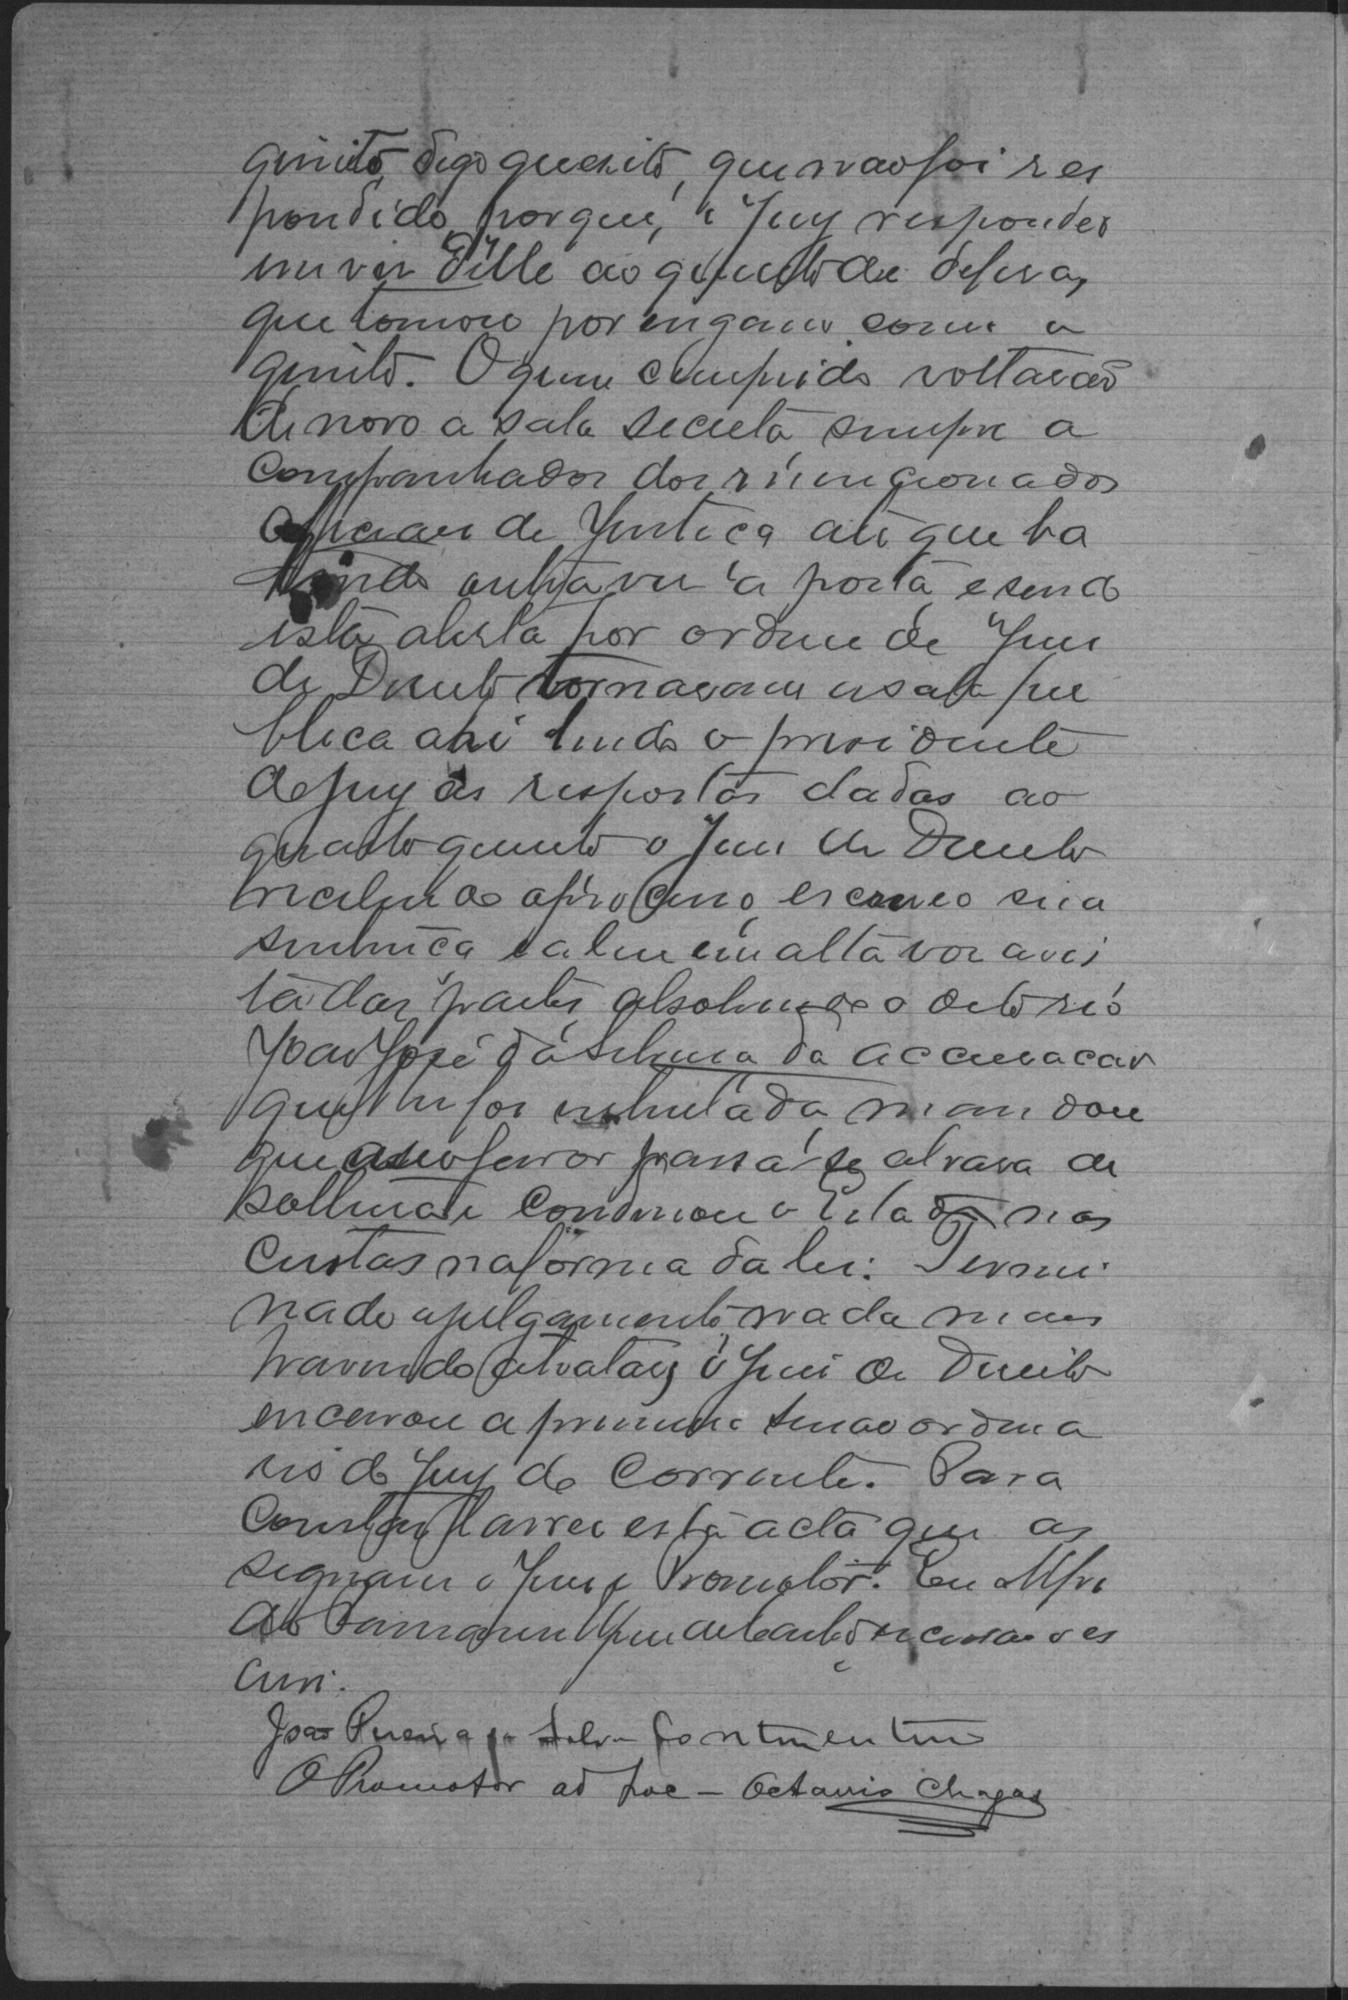 quisito, digo quesito, que não foi res
pondido, porque, o Jury respondeo
em vez d'elle ao quesito de defesa,
que tomou por engano como o
quinto. O que cumprido voltarão
de novo a sala secreta sempre a
companhados dos mencionados
officiaes de Justiça até que ba
tendo outra vez á porta, e sendo
esta aberta por ordem do Juiz
de Direito tornaram a sala pu
blica ahi lendo o presidente
do jury as respostas dadas ao
quarto quesito o Juiz de Direito
recebendo o processo, escreveo sua
sentença e a leu em alta voz a vis
ta das partes absolvendo o dito réo
João José da Silva da accusação
que lhe foi intentada, mandou
que a seo favor passá-se alvará de
soltura e condemnou o Estado nas
custas na forma da lei. Termi
nado o julgamento nada mais
havendo a tratar, o Juiz de Direito
encerrou a primeira sessão ordina
ria do Jury de Corrente. Para
constar lavrei esta acta que as
signam o Juiz e Promotor. Eu
escrivão o es
crevi.
João Pereira da Silva
O Promotor ad hoc – Octavio Chagas